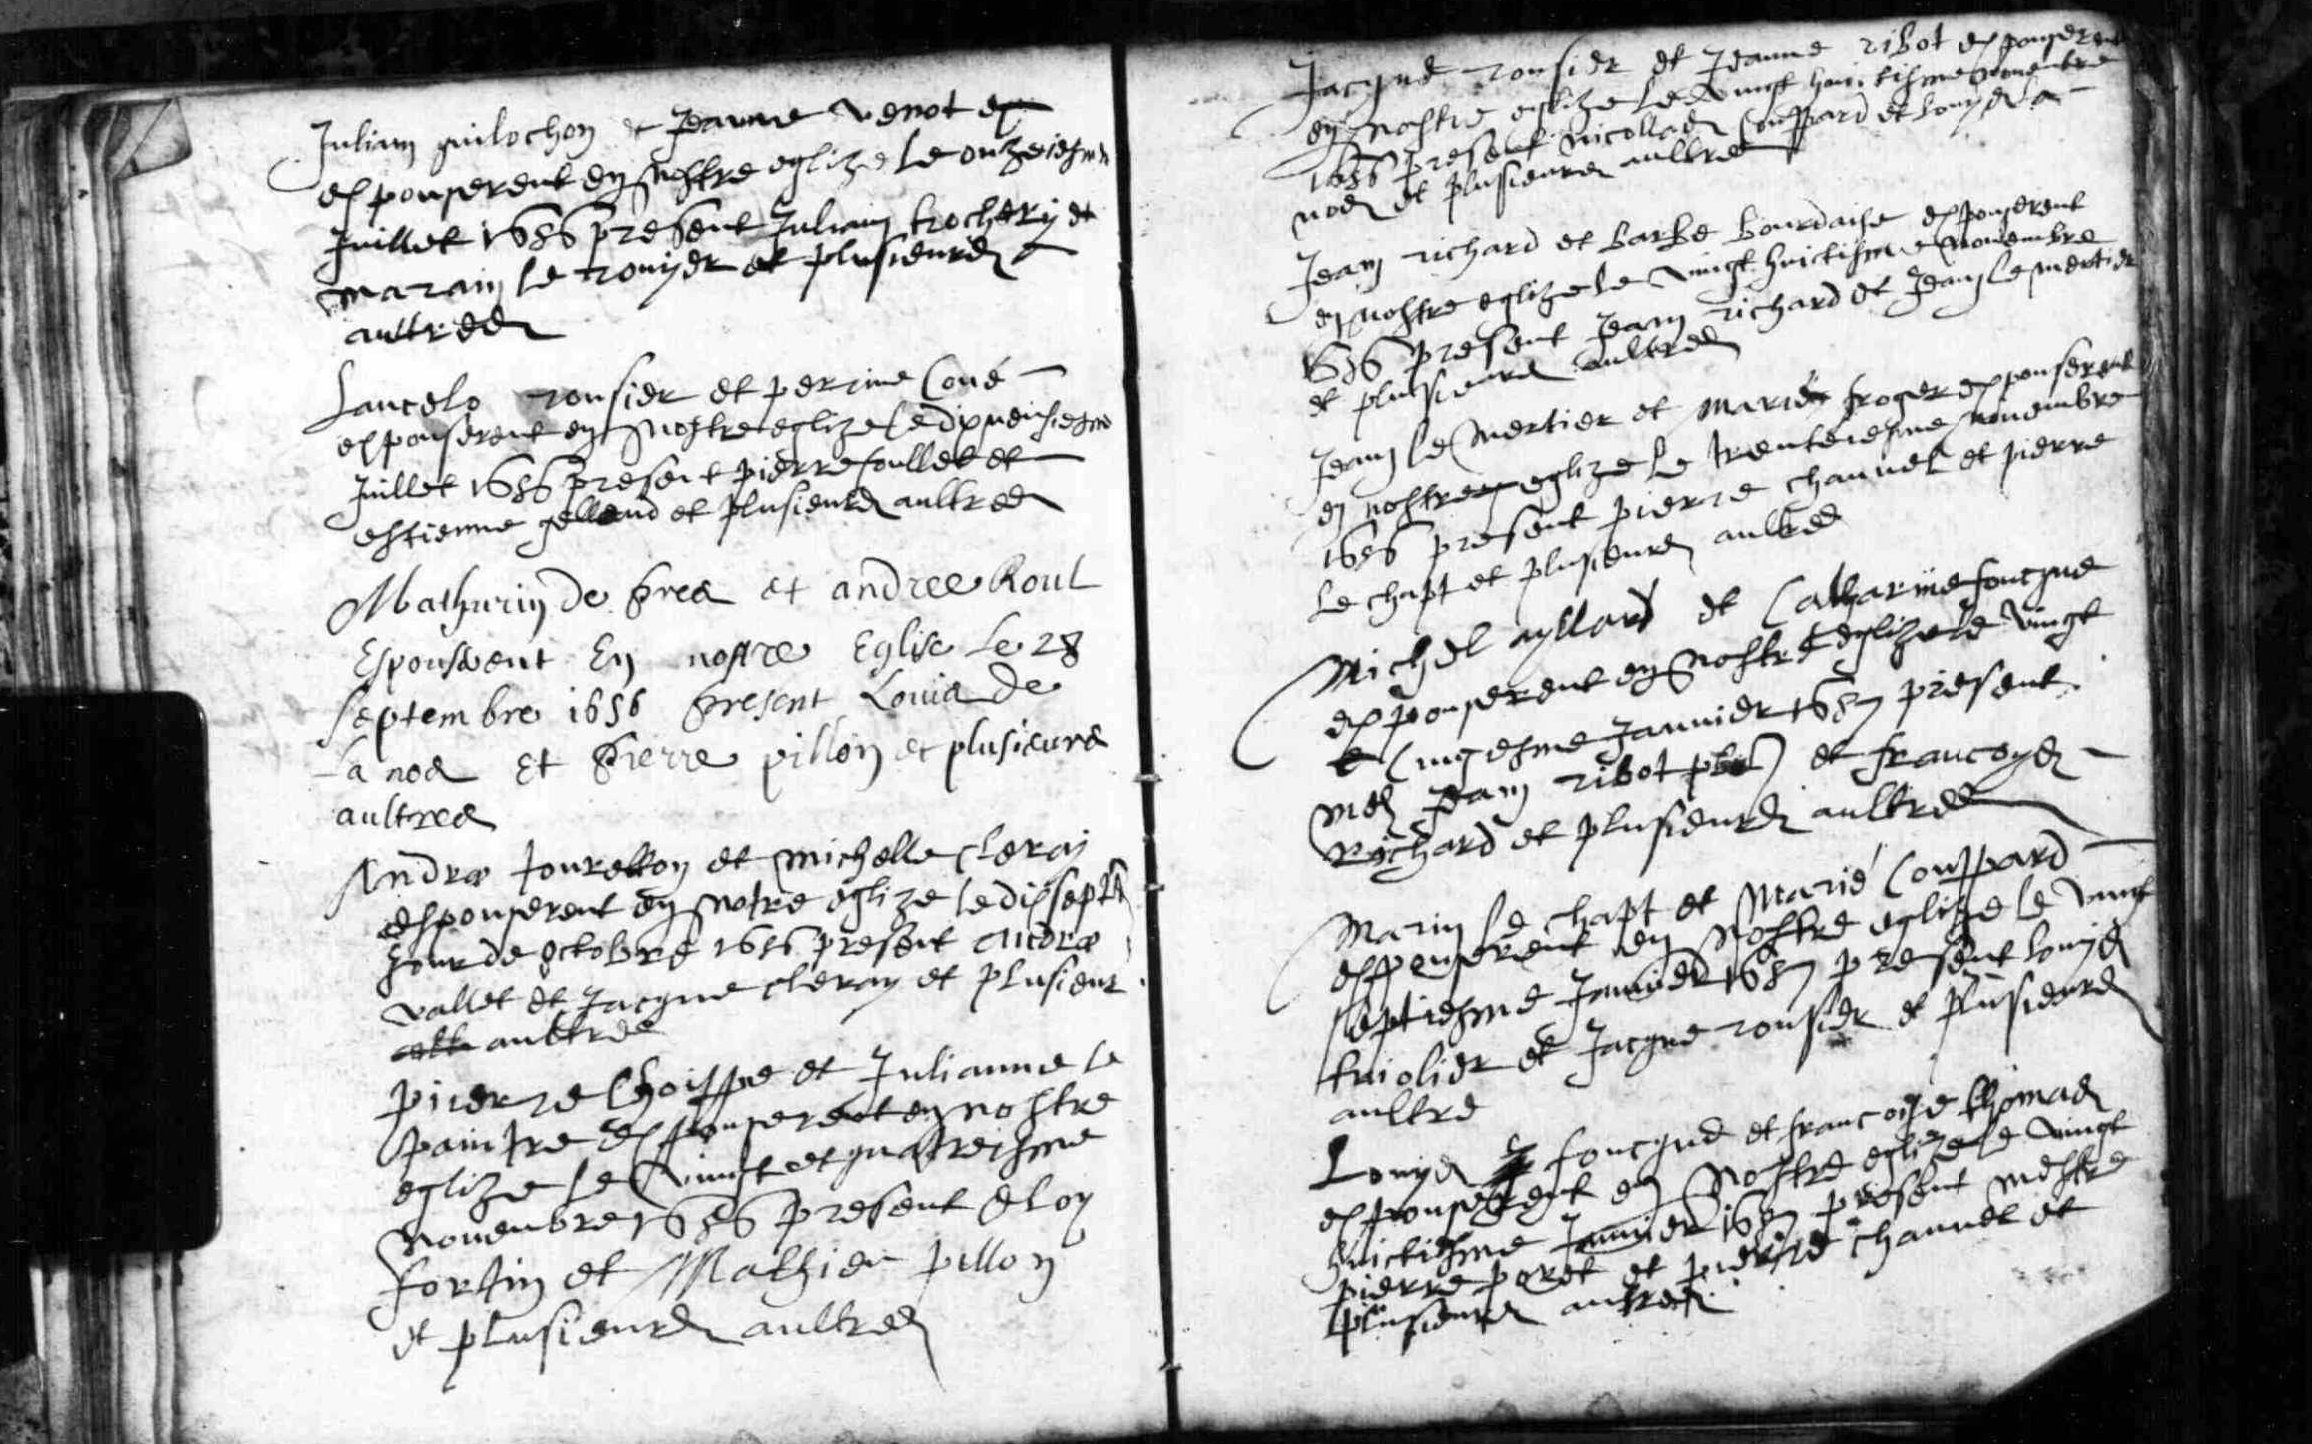 Juliam guilochon et Jeanne venot es
espouserent en nostre eglize le onzeiesme
Juillet 1656 present Juliam trochery et
marain le rouyer et plusieurs
aultres
Lancelo rousier et perrine Coué
espouserent en nostre eglize le dixneufiesme
Juillet 1656 present pierre Coullet et
estienne gelland et plusieurs aultres
Mathurin de pres et andree Roul
Espouserent En nostre Eglise Le 28
septembre 1656 present Louis de
La noe Et pierre pillon et plusieurs
aultres
Andre touretton et michelle cleray
espouserent en notre eglize le dixsept
jour de octobre 1656 present Andre
vallet et Jacque cleray et plusieur
aultres
pierre Choippe et Julianne le
paintre espouserent en nostre
eglize le vingt et quatreisme
novenbre 1656 present eloy
fortin et Mathieu pillon
et plusieurs aultres
Jacque rousier et Jeanne ribot espouserent
en nostre eglize le vingt huictisme novembre
1656 present nicollas Couppard et Louys la
noe et plusieurs aultre
Jean richard et barbe bourdaise espouserent
en nostre eglize le vingt huictisme novembre
1656 present Jean richard et Jean le mertier
et plusieurs aultres
Jean le mertier et marie froger espouserent
en nostre eglize le trenteiesme novembre
1656 present pierre chauvel et pierre
Le chapt et plusieurs aultres
Michel ayllard et Catharine foucque
espouserent en nostre eglize le vingt
et cinqesme Janvier 1657 present
mes Jean ribot pbre et francoys
Richard et plusieurs aultres
Marin le chapt et Marie Couppard
espouserent en nostre eglize le vingt
septiesme Janvier 1657 present Louys
triolier et Jacque rousier et plusieurs
aultre
Louys foucque et francoise thomas
espouserent en nostre eglize le vingt
huictiesme Janvier 1657 present mestre
pierre poret et pierre chauvel et
plusieurs aultres